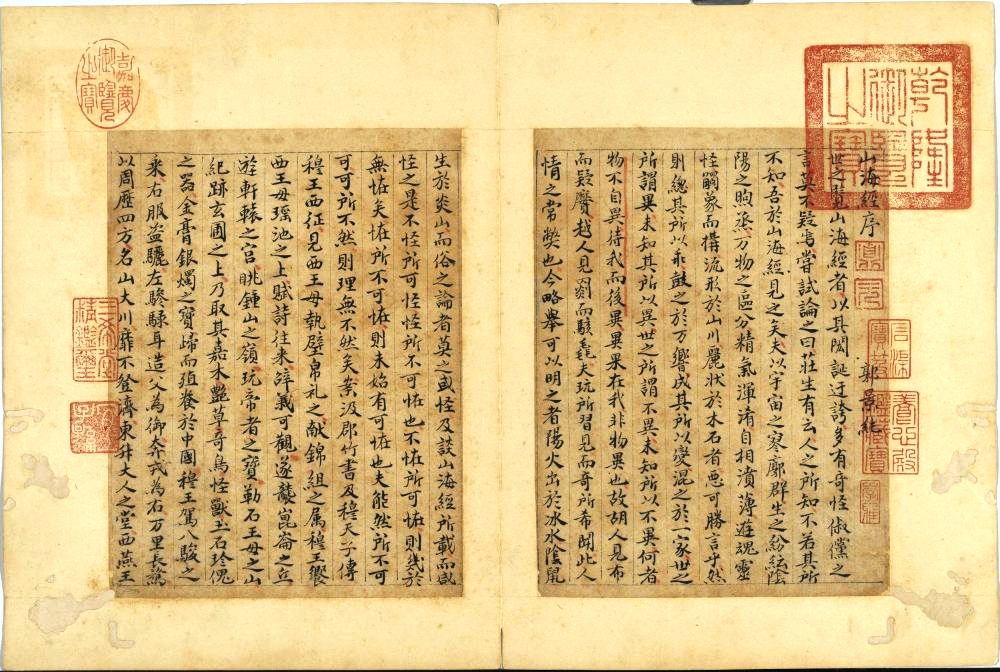 山海經序
郭景純
世之覽山海經者以其閎誕迂誇多有奇怪俶儻之
言莫不疑焉嘗試論之曰莊生有云人之所知不若其所
不知吾於山海經見之矣夫以宇宙之寥廓群生之紛紜陰
陽之煦烝万物之區分精氣渾淆自相濆薄遊魂靈
怪觸象而構流形於山川麗狀於木石者惡可勝言乎然
則緫其所以乖鼓之於万響成其所以變混之於一家世之
所謂異未知其所以異世之所謂不異未知所以不異何者
物不自異待我而後異異果在我非物異也故胡人見布
而疑黂越人見罽而駭毳夫玩所習見而奇所希聞此人
情之常獘也今略舉可以明之者陽火出於冰水陰鼠
生於炎山而俗之論者莫之或怪及談山海經所載而咸
怪之是不怪所可怪怪所不可怪也不怪所可怪則㡬於
無怪矣怪所不可怪則未始有可怪也夫能然所不可
可可所不然則理無不然矣案汲郡竹書及穆天子傳
穆王西征見西王母執璧帛礼之献錦組之属穆王饗
西王母瑶池之上賦詩往來辭義可觀遂襲崑崙之丘
遊軒轅之宮眺鍾山之嶺玩帝者之寶勒石王母之山
紀跡玄圃之上乃取其嘉木艷草奇鳥怪獸玉石珍傀
之器金膏銀燭之寶歸而殖養於中國穆王駕八駿之
乘右服盗驪左驂騄耳造父為御奔戎為右万里長騖
以周歷四方名山大川靡不登濟東升大人之堂西燕王
乾隆御覽之寶
嘉慶御覽之寶